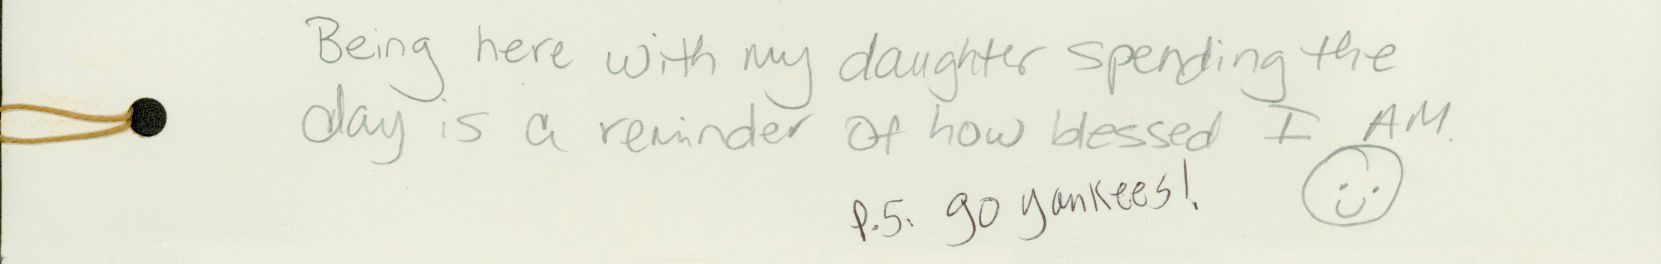 Being here with my daughter spending the
day is a reminder of how blessed I AM.
P.S. go yankees!